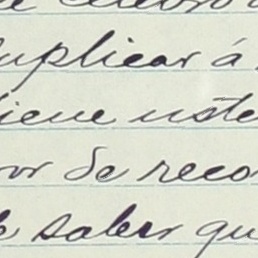 suplicar á
tiene uste
or de reco
de saber qu